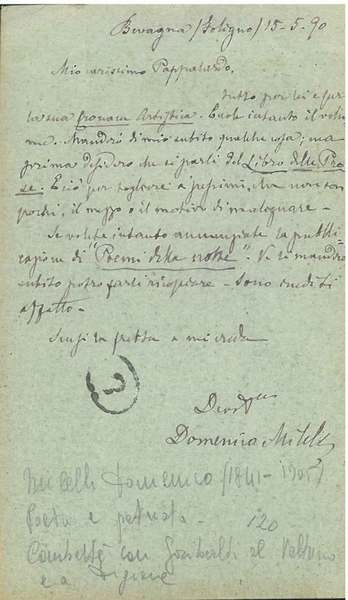 Bevagna (Foligno) 15-5-90
Mio carissimo Pappalardo,
Tutto per lei e per
la sua Cronaca Artistica. Ecole intanto il volu-
me. Manderò di mio subito qualche cosa; ma
prima desidero che si parli del Libro delle Pro-
se. E ciò per togliere a pessimi, che non son
pochi, il mezzo o il motivo di malignare.
Se volete intanto annunziate la pubbli-
cazione di "Poemi della notte". Ve li manderò
subito potrò farli ricopiare - sono inediti
affatto -
Scusi la fretta e mi creda
Devot
Domenico Milelli
3
Milelli Domenico (1841-1905)
Poeta e patriota -
120
Combatté con Garibaldi al Volturno
e a Digione